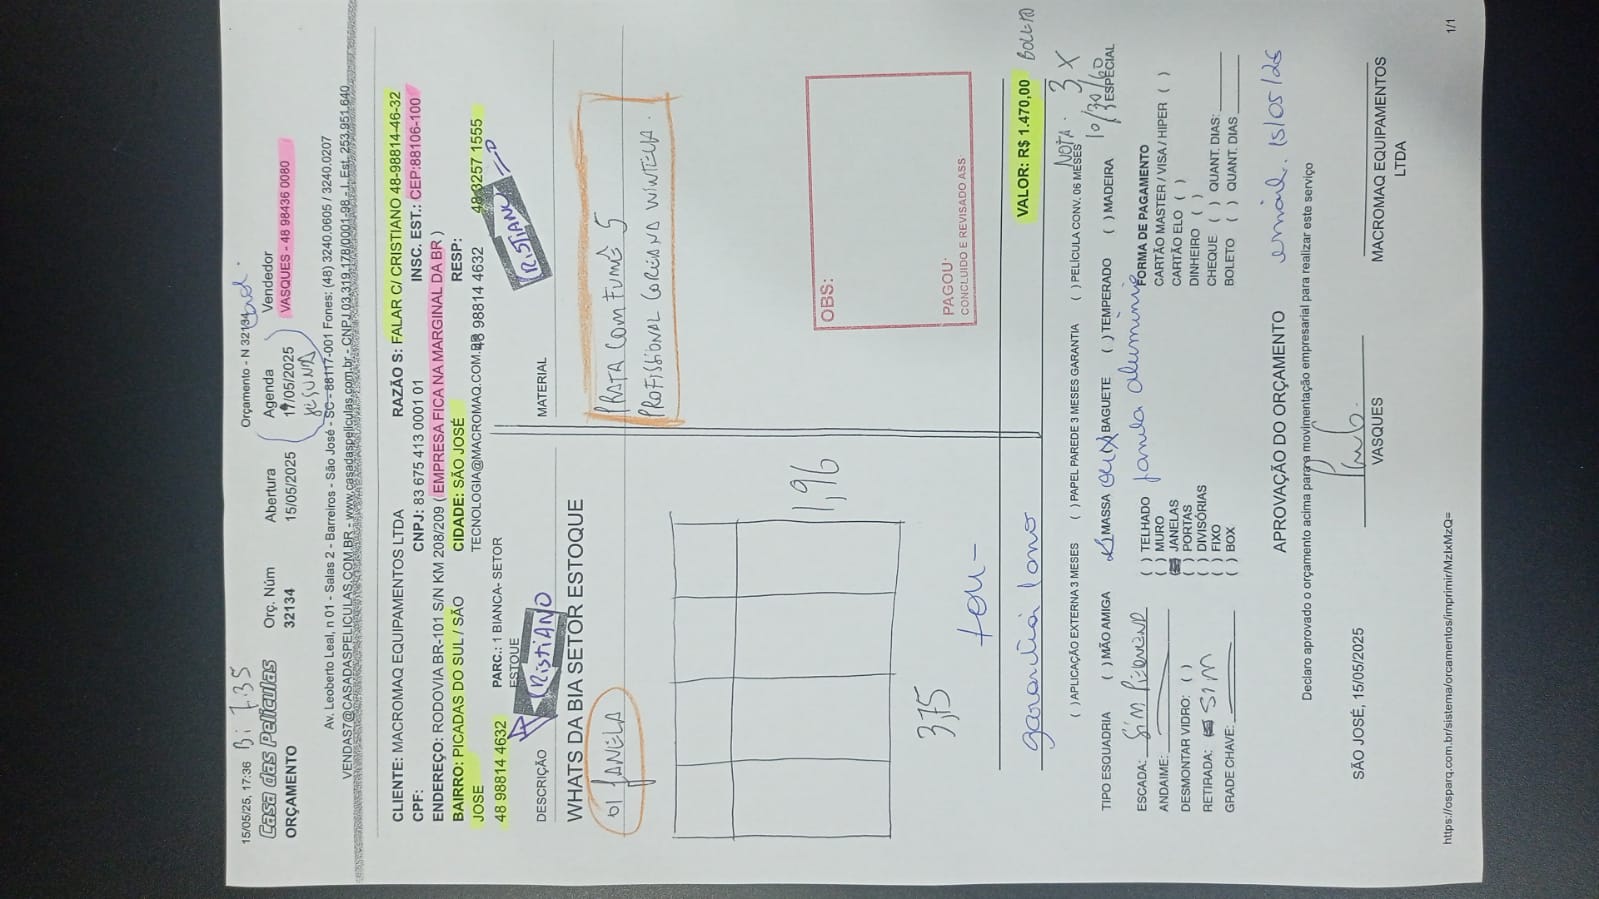 15/05/25, 17:36 Bi 7.35 Orçamento - N 32134
Casa das Películas
ORÇAMENTO
Orç. Núm
32134
Abertura
15/05/2025
Agenda
17/05/2025
Vendedor
VASQUES - 48 98436 0080
Av. Leoberto Leal, n 01 - Salas 2 - Barreiros - São José - SC - 88117-001 Fones: (48) 3240.0605 / 3240.0207
VENDAS7@CASADASPELICULAS.COM.BR - www.casadaspeliculas.com.br - CNPJ 03.319.178/0001-98 - I. Est. 253.951.640
CLIENTE: MACROMAQ EQUIPAMENTOS LTDA RAZÃO S: FALAR C/ CRISTIANO 48-98814-46-32
CPF: CNPJ: 83 675 413 0001 01 INSC. EST.: CEP:88106-100
ENDEREÇO: RODOVIA BR-101 S/N KM 208/209 ( EMPRESA FICA NA MARGINAL DA BR )
BAIRRO: PICADAS DO SUL / SÃO JOSE
CIDADE: SÃO JOSÉ
RESP:
TECNOLOGIA@MACROMAQ.COM.BR
48 98814 4632
48 3257 1555
CRISTIANO
48 98814 4632
PARC.: 1 BIANCA- SETOR ESTOQUE
CRISTIANO
DESCRIÇÃO MATERIAL
WHATS DA BIA SETOR ESTOQUE
01 JANELA
PRATA COM FUMÊ 5
PROFISSIONAL COREANA WINTECH.
1,96
3,75
OBS:
PAGOU:
CONCLUIDO E REVISADO ASS
garantia 1 ano
VALOR: R$ 1.470,00 BOLETO
NOTA. 3 X
10/30/60
( ) APLICAÇÃO EXTERNA 3 MESES ( ) PAPEL PAREDE 3 MESES GARANTIA ( ) PELÍCULA CONV. 06 MESES
TIPO ESQUADRIA ( ) MÃO AMIGA MASSA BAGUETE ( ) TEMPERADO ( ) MADEIRA ESPECIAL
janela aluminio
ESCADA: Sim
ANDAIME:
DESMONTAR VIDRO: ( )
RETIRADA: SIM
GRADE CHAVE:
( ) TELHADO
( ) MURO
JANELAS
( ) PORTAS
( ) DIVISÓRIAS
( ) FIXO
( ) BOX
FORMA DE PAGAMENTO
CARTÃO MASTER / VISA / HIPER ( )
CARTÃO ELO ( )
DINHEIRO ( )
CHEQUE ( ) QUANT. DIAS:
BOLETO ( ) QUANT. DIAS
APROVAÇÃO DO ORÇAMENTO
Declaro aprovado o orçamento acima para a movimentação empresarial para realizar este serviço
SÃO JOSÉ, 15/05/2025
VASQUES
MACROMAQ EQUIPAMENTOS LTDA
https://osparq.com.br/sistema/orcamentos/imprimir/MzIxMzQ= 1/1